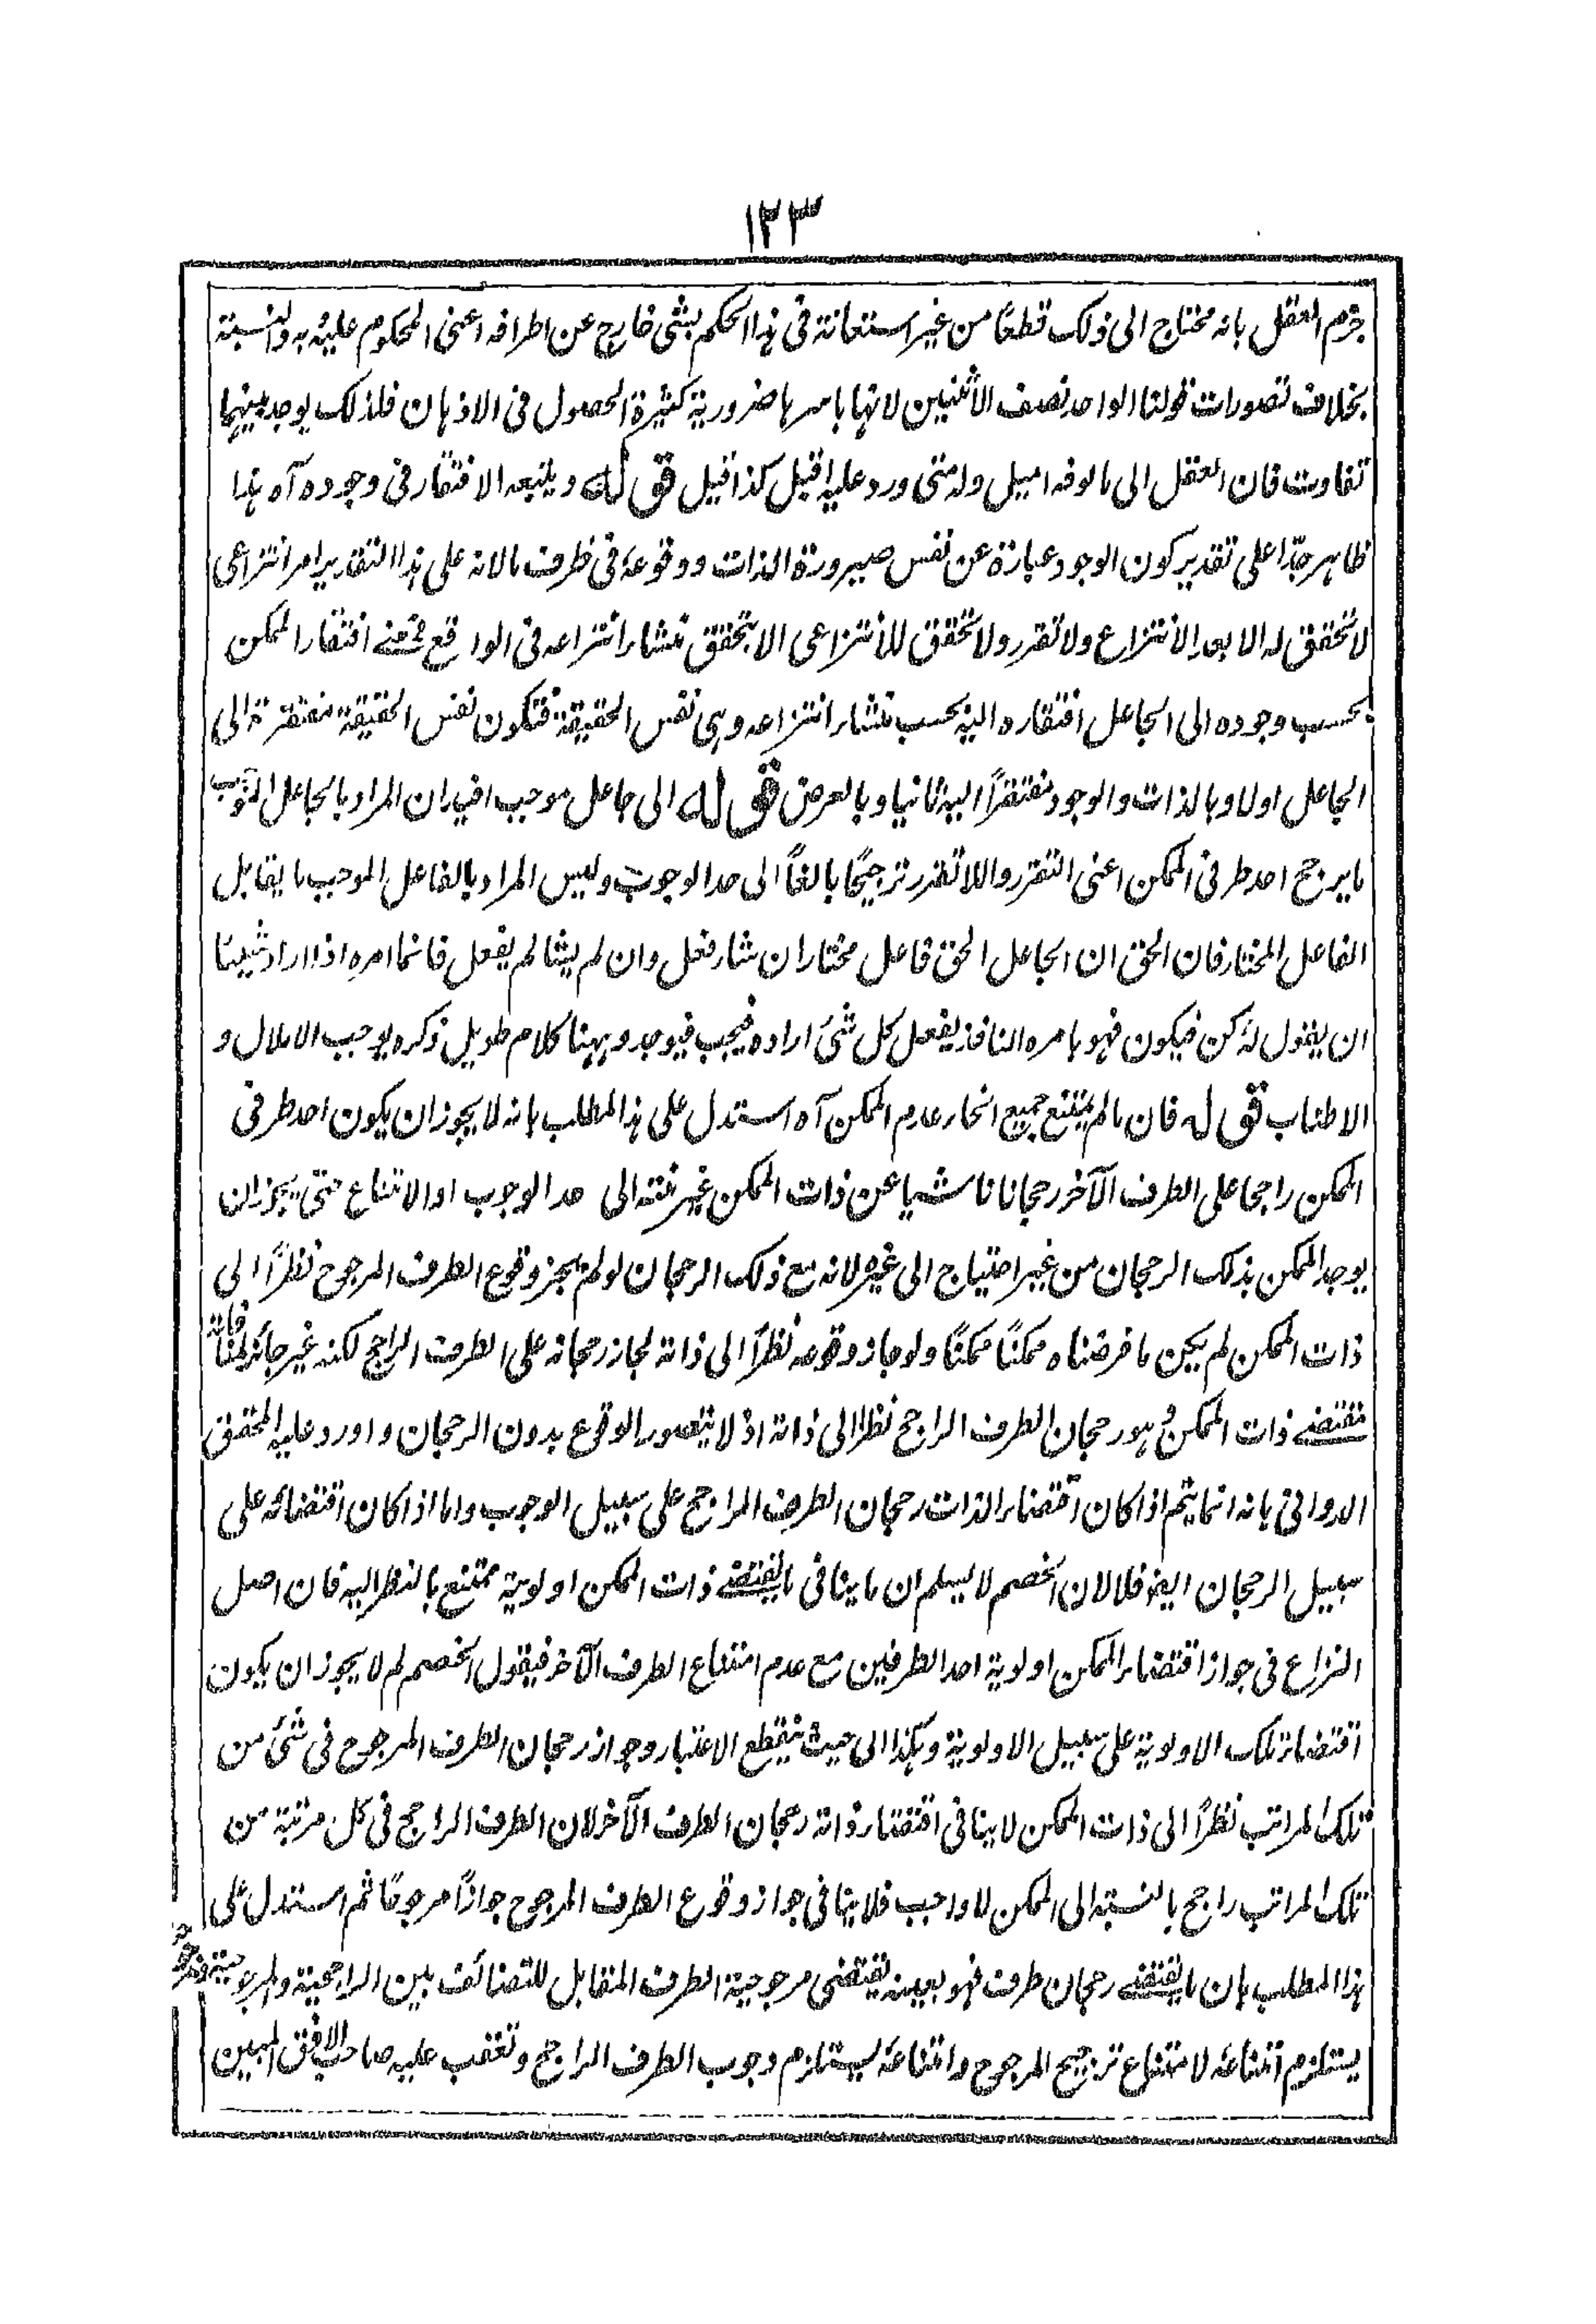 ١٢٣
جزم العقل بانه محتاج الى ذلك قطعًا من غير استعانة فى هذا الحكم بشئ خارج عن اطرافه اعنى المحكوم عليه وبه والنسبة
بخلاف تصورات قولنا الواحد نصف الاثنين لانها باسرها ضرورية كثيرة الحصول فى الاذهان فلذلك يوجد بينهما
تفاوت فان العقل الى مالوفه اميل وله متى ورد عليه اقبل كذا قيل قوله ويتبعه الافتقار فى وجوده آه هذا
ظاهر جدًا على تقدير كون الوجود عبارة عن نفس صيرورة الذات ووقوعه فى ظرف ما لانه على هذا التقدير امر انتزاعى
لا تحقق له الا بعد الانتزاع ولا تقرر ولا تحقق للانتزاعى الا بتحقق منشاء انتزاعه فى الواقع فمعنى افتقار الممكن
بحسب وجوده الى الجاعل افتقاره اليه بحسب منشاء انتزاعه وهى نفس الحقيقة فتكون نفس الحقيقة مفتقرة الى
الجاعل اولا وبالذات والوجود مفتقرًا اليه ثانيا وبالعرض قوله الى جاعل موجب اقيد ان المراد بالجاعل الموجب
ما يرجح احد طرفى الممكن اعنى التقرر واللاتقرر ترجيحًا بالغًا الى حد الوجوب وليس المراد بالفاعل الموجب ما يقابل
الفاعل المختار فان الحق ان الجاعل الحق فاعل مختار ان شاء فعل وان لم يشا لم يفعل فانما امره اذا اراد شيئا
ان يقول له كن فيكون فهو بامره النافذ يفعل كل شئ اراده فيجب فيوجد وههنا كلام طويل ذكره يوجب الاملال و
الاطناب قوله فان ما لم يمتنع جميع انحاء عدم الممكن آه استدل على هذا المطلب بانه لا يجوز ان يكون احد طرفى
الممكن راجحا على الطرف الآخر رجحانا ناشيا عن ذات الممكن غير منته الى حد الوجوب او الامتناع حتى يجوز ان
يوجد الممكن بذلك الرجحان من غير احتياج الى غيره لانه مع ذلك الرجحان لو لم يجز وقوع الطرف المرجوح نظرًا الى
ذات الممكن لم يكن ما فرضناه ممكنًا ممكنًا ولو جاز وقوعه نظرًا الى ذاته لجاز رجحانه على الطرف الراجح لكنه غير جائز لمنافاته
مقتضى ذات الممكن وهو رجحان الطرف الراجح نظرا الى ذاته اذ لا يتصور الوقوع بدون الرجحان واورد عليه المحقق
الدوانى بانه انما يتم اذا كان اقتضاء الذات رجحان الطرف الراجح على سبيل الوجوب واما اذا كان اقتضائه على
سبيل الرجحان ايضا فلا لان الخصم لا يسلم ان ما ينافى ما يقتضى ذات الممكن اولوية ممتنع بالنظر اليه فان اصل
النزاع فى جواز اقتضاء الممكن اولوية احد الطرفين مع عدم امتناع الطرف الآخر فيقول الخصم لم لا يجوز ان يكون
اقتضاء تلك الاولوية على سبيل الاولوية وهكذا الى حيث ينقطع الاعتبار وجواز رجحان الطرف المرجوح فى شئ من
تلك المراتب نظرًا الى ذات الممكن لا ينافى اقتضاء ذاته رجحان الطرف الآخر لان الطرف الراجح فى كل مرتبة من
تلك المراتب راجح بالنسبة الى الممكن لا واجب فلا ينافى جواز وقوع الطرف المرجوح جوازًا مرجوحًا ثم استدل على
هذا المطلب بان ما يقتضى رجحان طرف فهو بعينه يقتضى مرجوحية الطرف المقابل للتضائف بين الراجحية والمرجوحية ومرجوحيته
يستلزم امتناعه لامتناع ترجيح المرجوح وامتناعه يستلزم وجوب الطرف الراجح وتعقب عليه صاحب الافق المبين